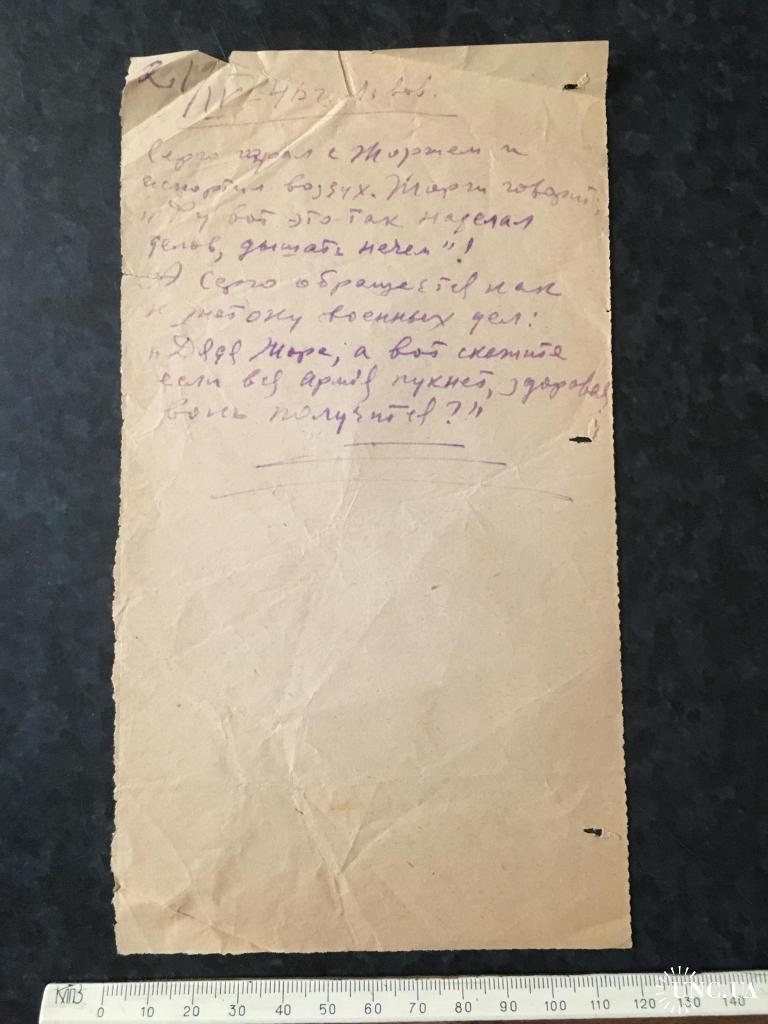 2/IV-46г. Львов.
Серго играл с Жоржем и
испортил воздух. Жорж говорит:
"Фу вот это так наделал
делов, дышать нечем"!
А Серго обращается как
к знатоку военных дел:
"Дядя Жора, а вот скажите
если вся армия пукнет, здоровая
вонь получится?"
КПЗ 0 10 20 30 40 50 60 70 80 90 100 110 120 130 140
UNC.UA